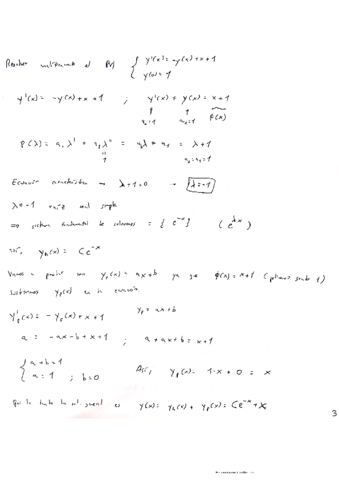 Resolver analíticamente el PVI { y'(x) = -y(x)+x+1
y(0) = 1
y'(x) = -y(x)+x+1 ; y'(x) + y(x) = x+1
a₀=1 φ(x)
P(λ) = = λ+1
Ecuación característica → λ+1=0 → λ=-1
λ=-1 raíz real simple
⇒ sistema fundamental de soluciones = { e^{-x} } (e^{λx})
Así, y_h(x) = Ce^{-x}
Vamos a probar con y_p(x) = ax+b ya que φ(x) = x+1 (polinomio grado 1)
Sustituimos y_p(x) en la ecuación.
y'_p(x) = -y_p(x)+x+1 y_p = ax+b
a = -ax-b+x+1 ; a+ax+b = x+1
{ a+b=1
a=1 ; b=0 Así, y_p(x) = 1·x+0 = x
Por lo tanto la sol. general es y(x) = y_h(x) + y_p(x) = Ce^{-x}+x
3